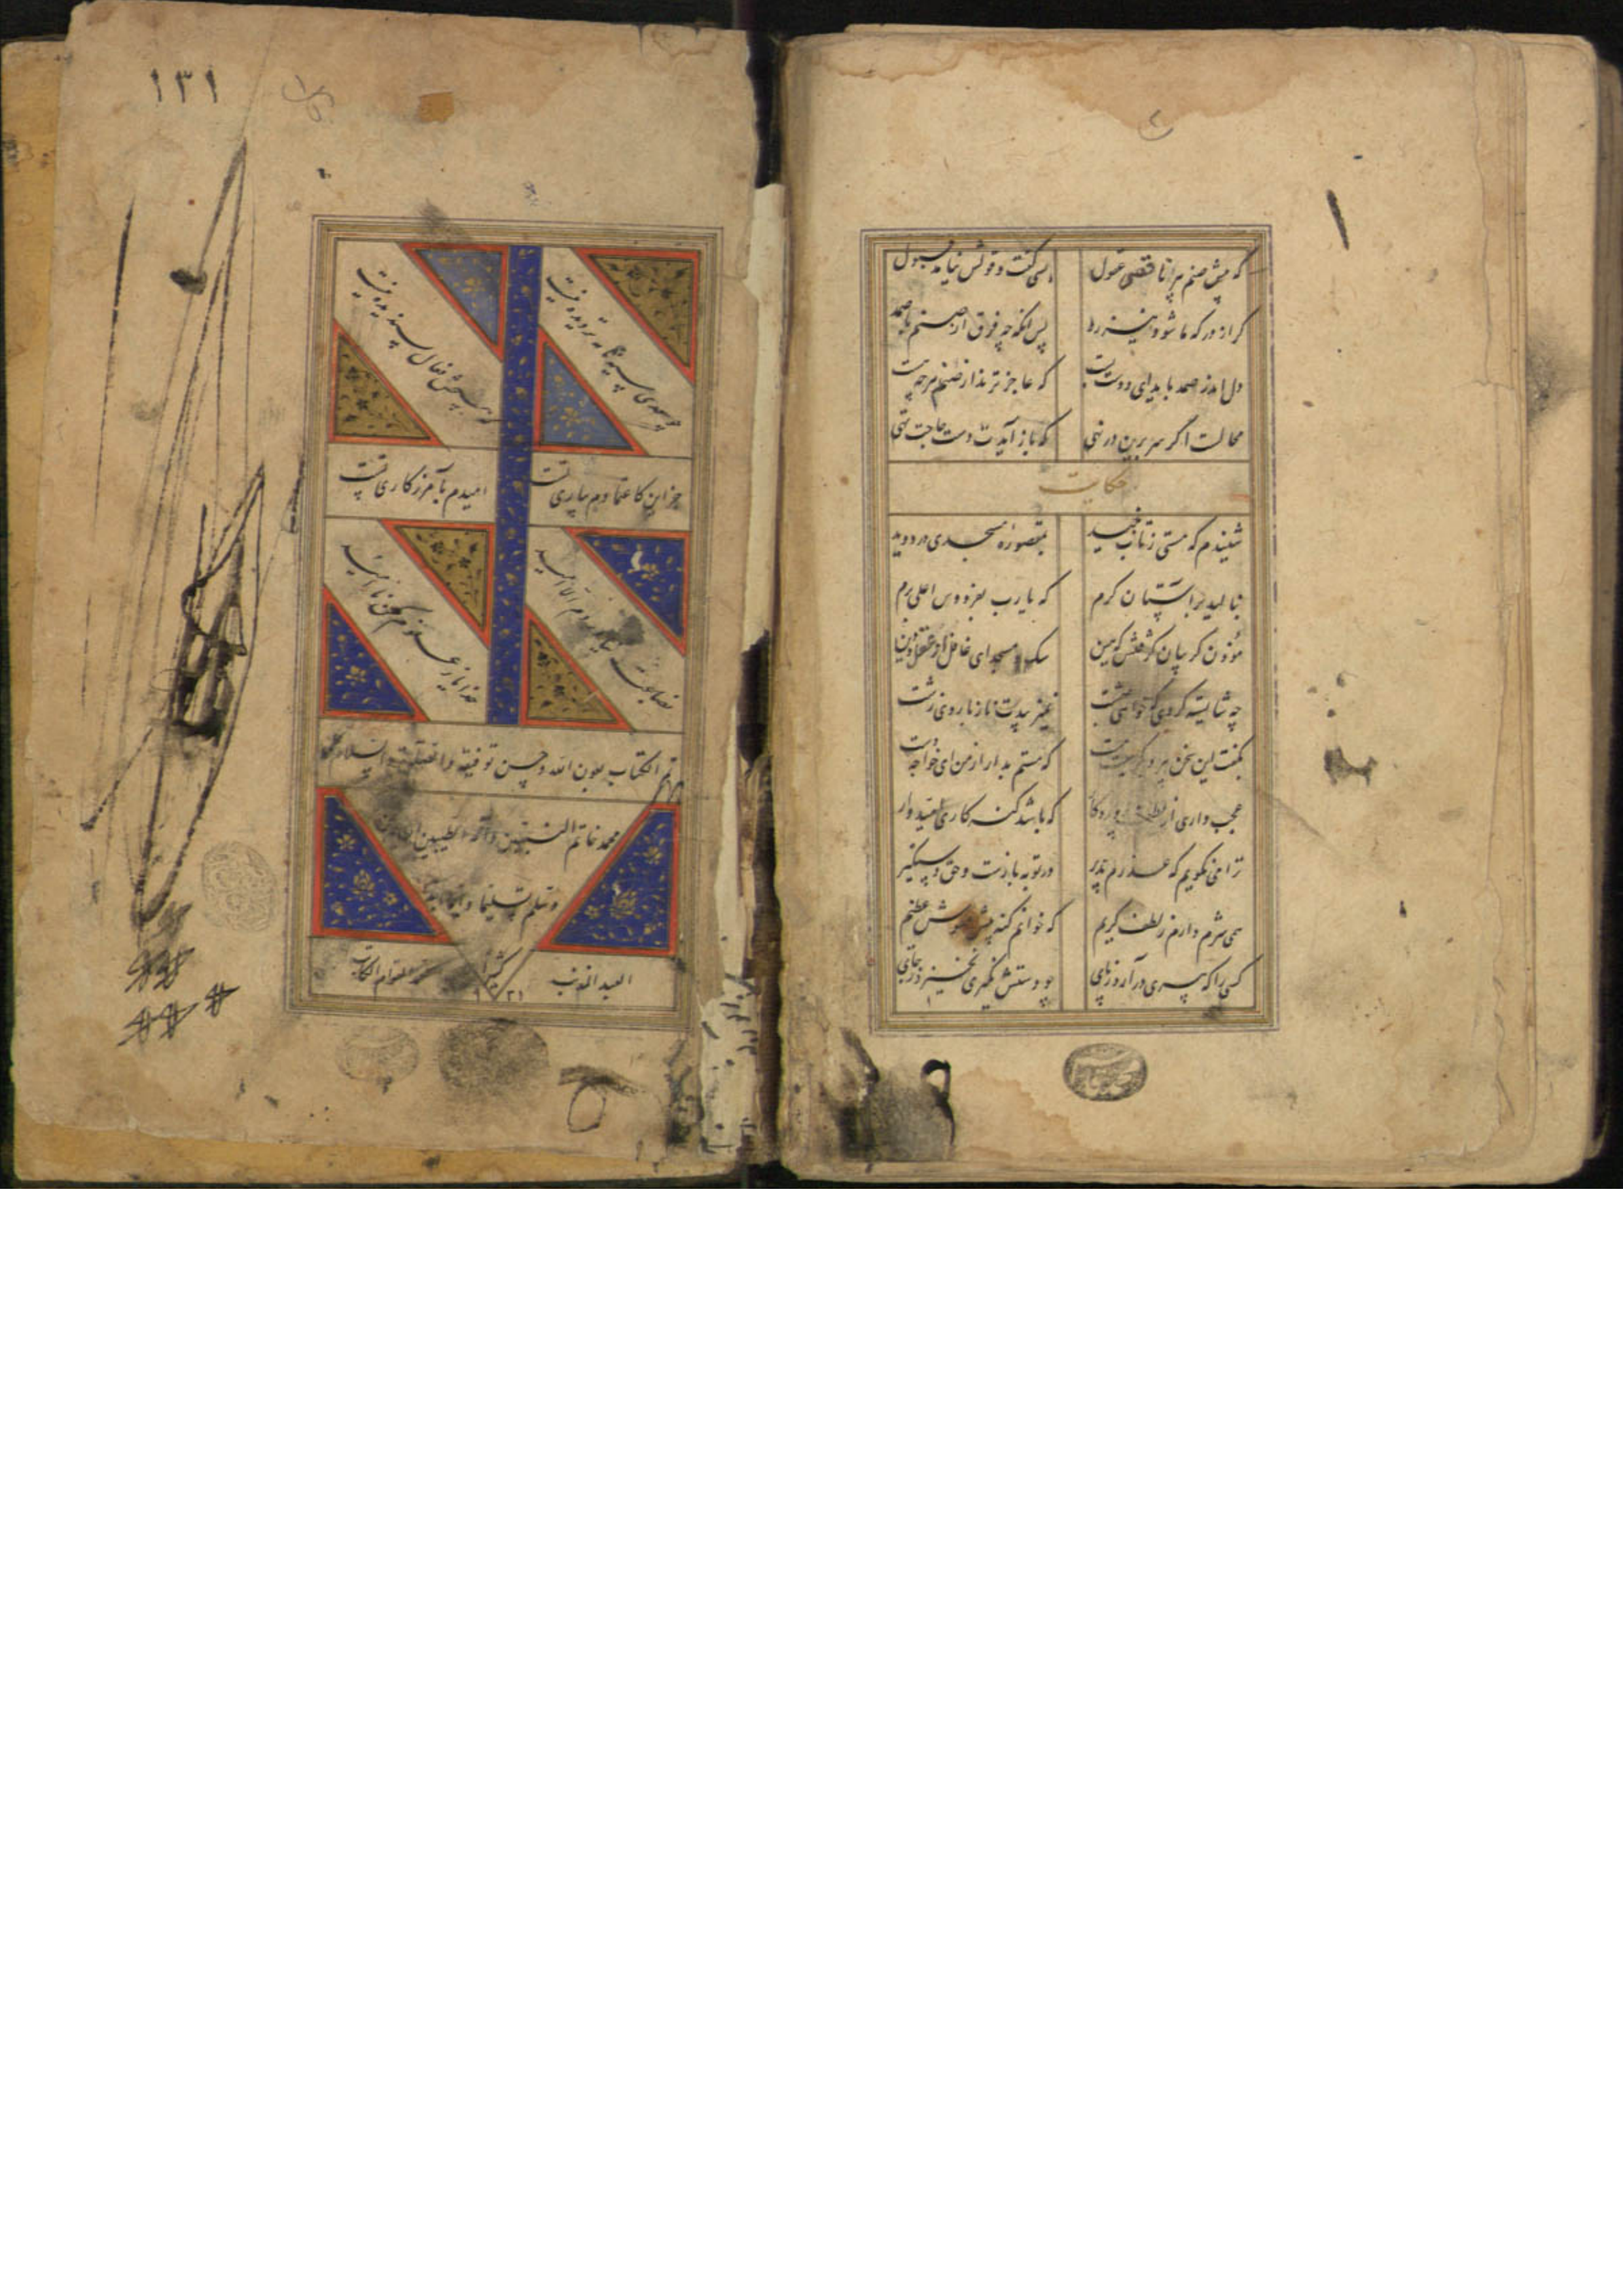 که پیش صنم پیر ناقص عقول بسی گفت و قولش نیامد قبول
گر از درگه ما شود نیز رد پس آنگه چه فرق از صنم تا صمد
دل اندر صمد باید ای دوست بست که عاجزترند از صنم هر چه هست
محالست اگر سر برین در نهی که باز آیدت دست حاجت تهی
حکایت
شنیدم که مستی ز تاب نبید بمقصوره مسجدی در دوید
بنالید بر آستان کرم که یارب بفردوس اعلی برم
مؤذن گریبان گرفتش که هین سگ و مسجد ای غافل از عقل و دین
چه شایسته کردی که خواهی بهشت نمی زیبدت ناز با روی زشت
بگفت این سخن پیر و بگریست مست که مستم بدار از من ای خواجه دست
عجب داری از لطف پروردگار که باشد گنه کاری امیدوار
ترا می نگویم که عذرم پذیر در توبه بازست و حق دستگیر
همی شرم دارم ز لطف کریم که خوانم گنه پیش عفوش عظیم
کسی را که پیری در آرد ز پای چو دستش نگیری نخیزد ز جای
۱۳۱
جز این کاعتمادم بیاری تست امیدم بآمرزگاری تست
بضاعت نیاوردم الا امید خدایا ز عفوم مکن ناامید
تم الکتاب بعون الله و حسن توفیقه والصلوة والسلام علی
محمد خاتم النبیین وآله الطیبین
وسلم تسلیما
العبد المذنب
الکاتب